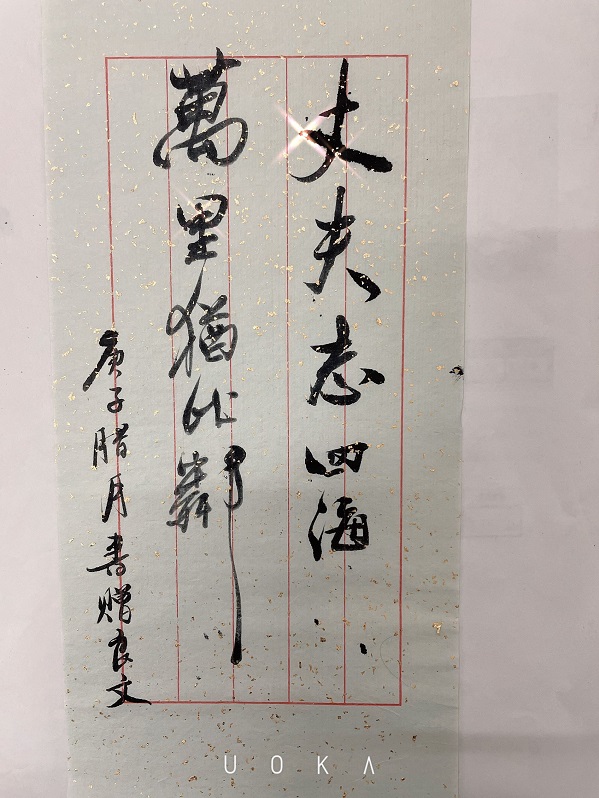 丈夫志四海
萬里猶比鄰
庚子腊月書贈良文
UOKA